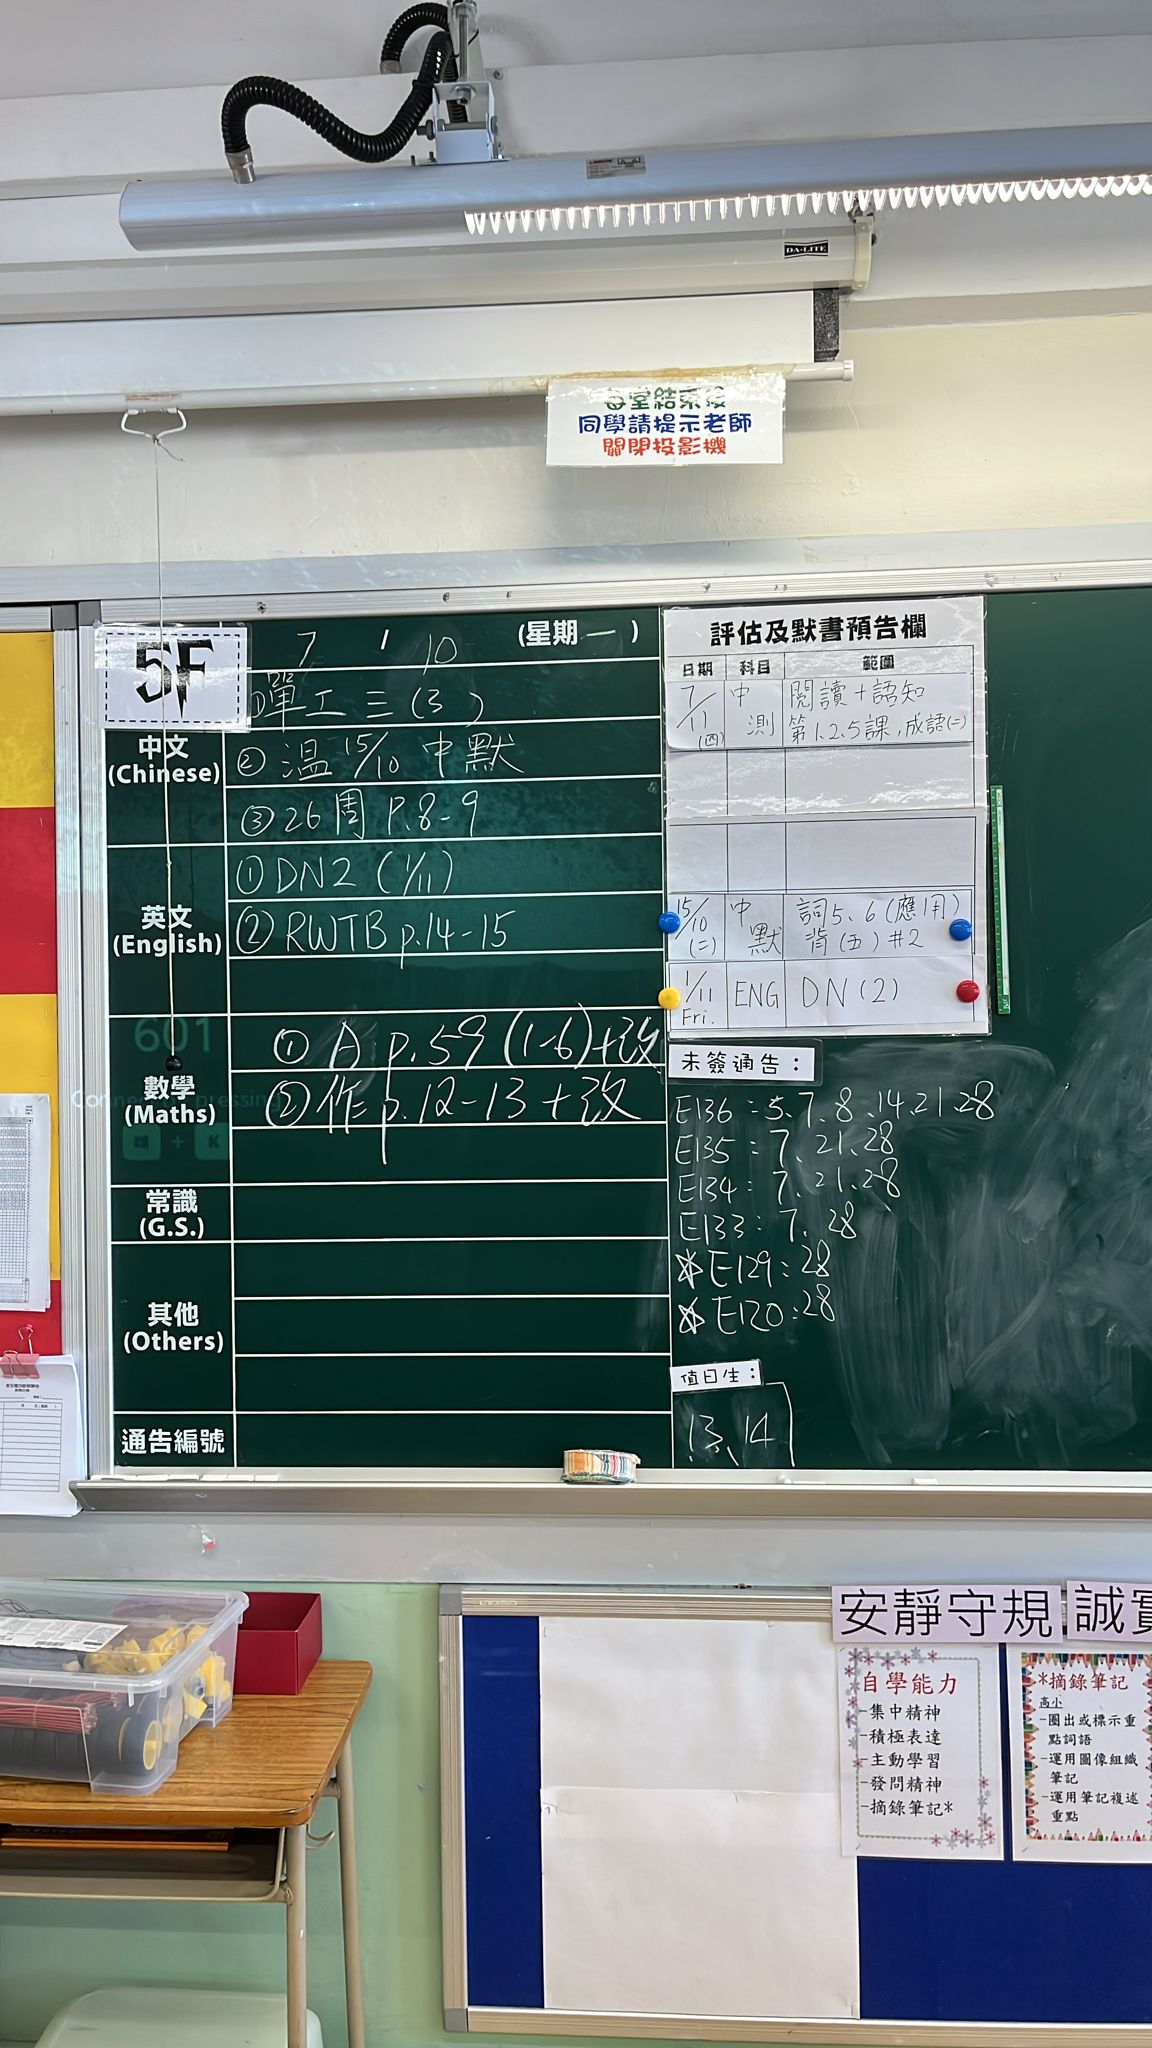 DA-LITE
每堂結束後
同學請提示老師
關閉投影機
5F
7 / 10 (星期一)
中文
(Chinese)
①單工三(3)
②溫15/10 中默
③26周 P.8-9
英文
(English)
①DN2 (1/11)
②RWTB p.14-15
601
數學
(Maths)
①A p.59 (1-6)+改
②作 p.12-13+改
常識
(G.S.)
其他
(Others)
通告編號
評估及默書預告欄
日期 科目 範圍
7/11 (四) 中測 閱讀+語知
第1.2.5課,成語(二)
15/10 (二) 中默 詞5、6(應用)
背(五)#2
1/11 Fri. ENG DN(2)
未簽通告:
E136:5、7、8、14、21、28
E135:7、21、28
E134:7、21、28
E133:7、28
*E129:28
*E120:28
值日生:
13、14
安靜守規
誠實
自學能力
-集中精神
-積極表達
-主動學習
-發問精神
-摘錄筆記*
*摘錄筆記
高小
-圈出或標示重
點詞語
-運用圖像組織
筆記
-運用筆記複述
重點